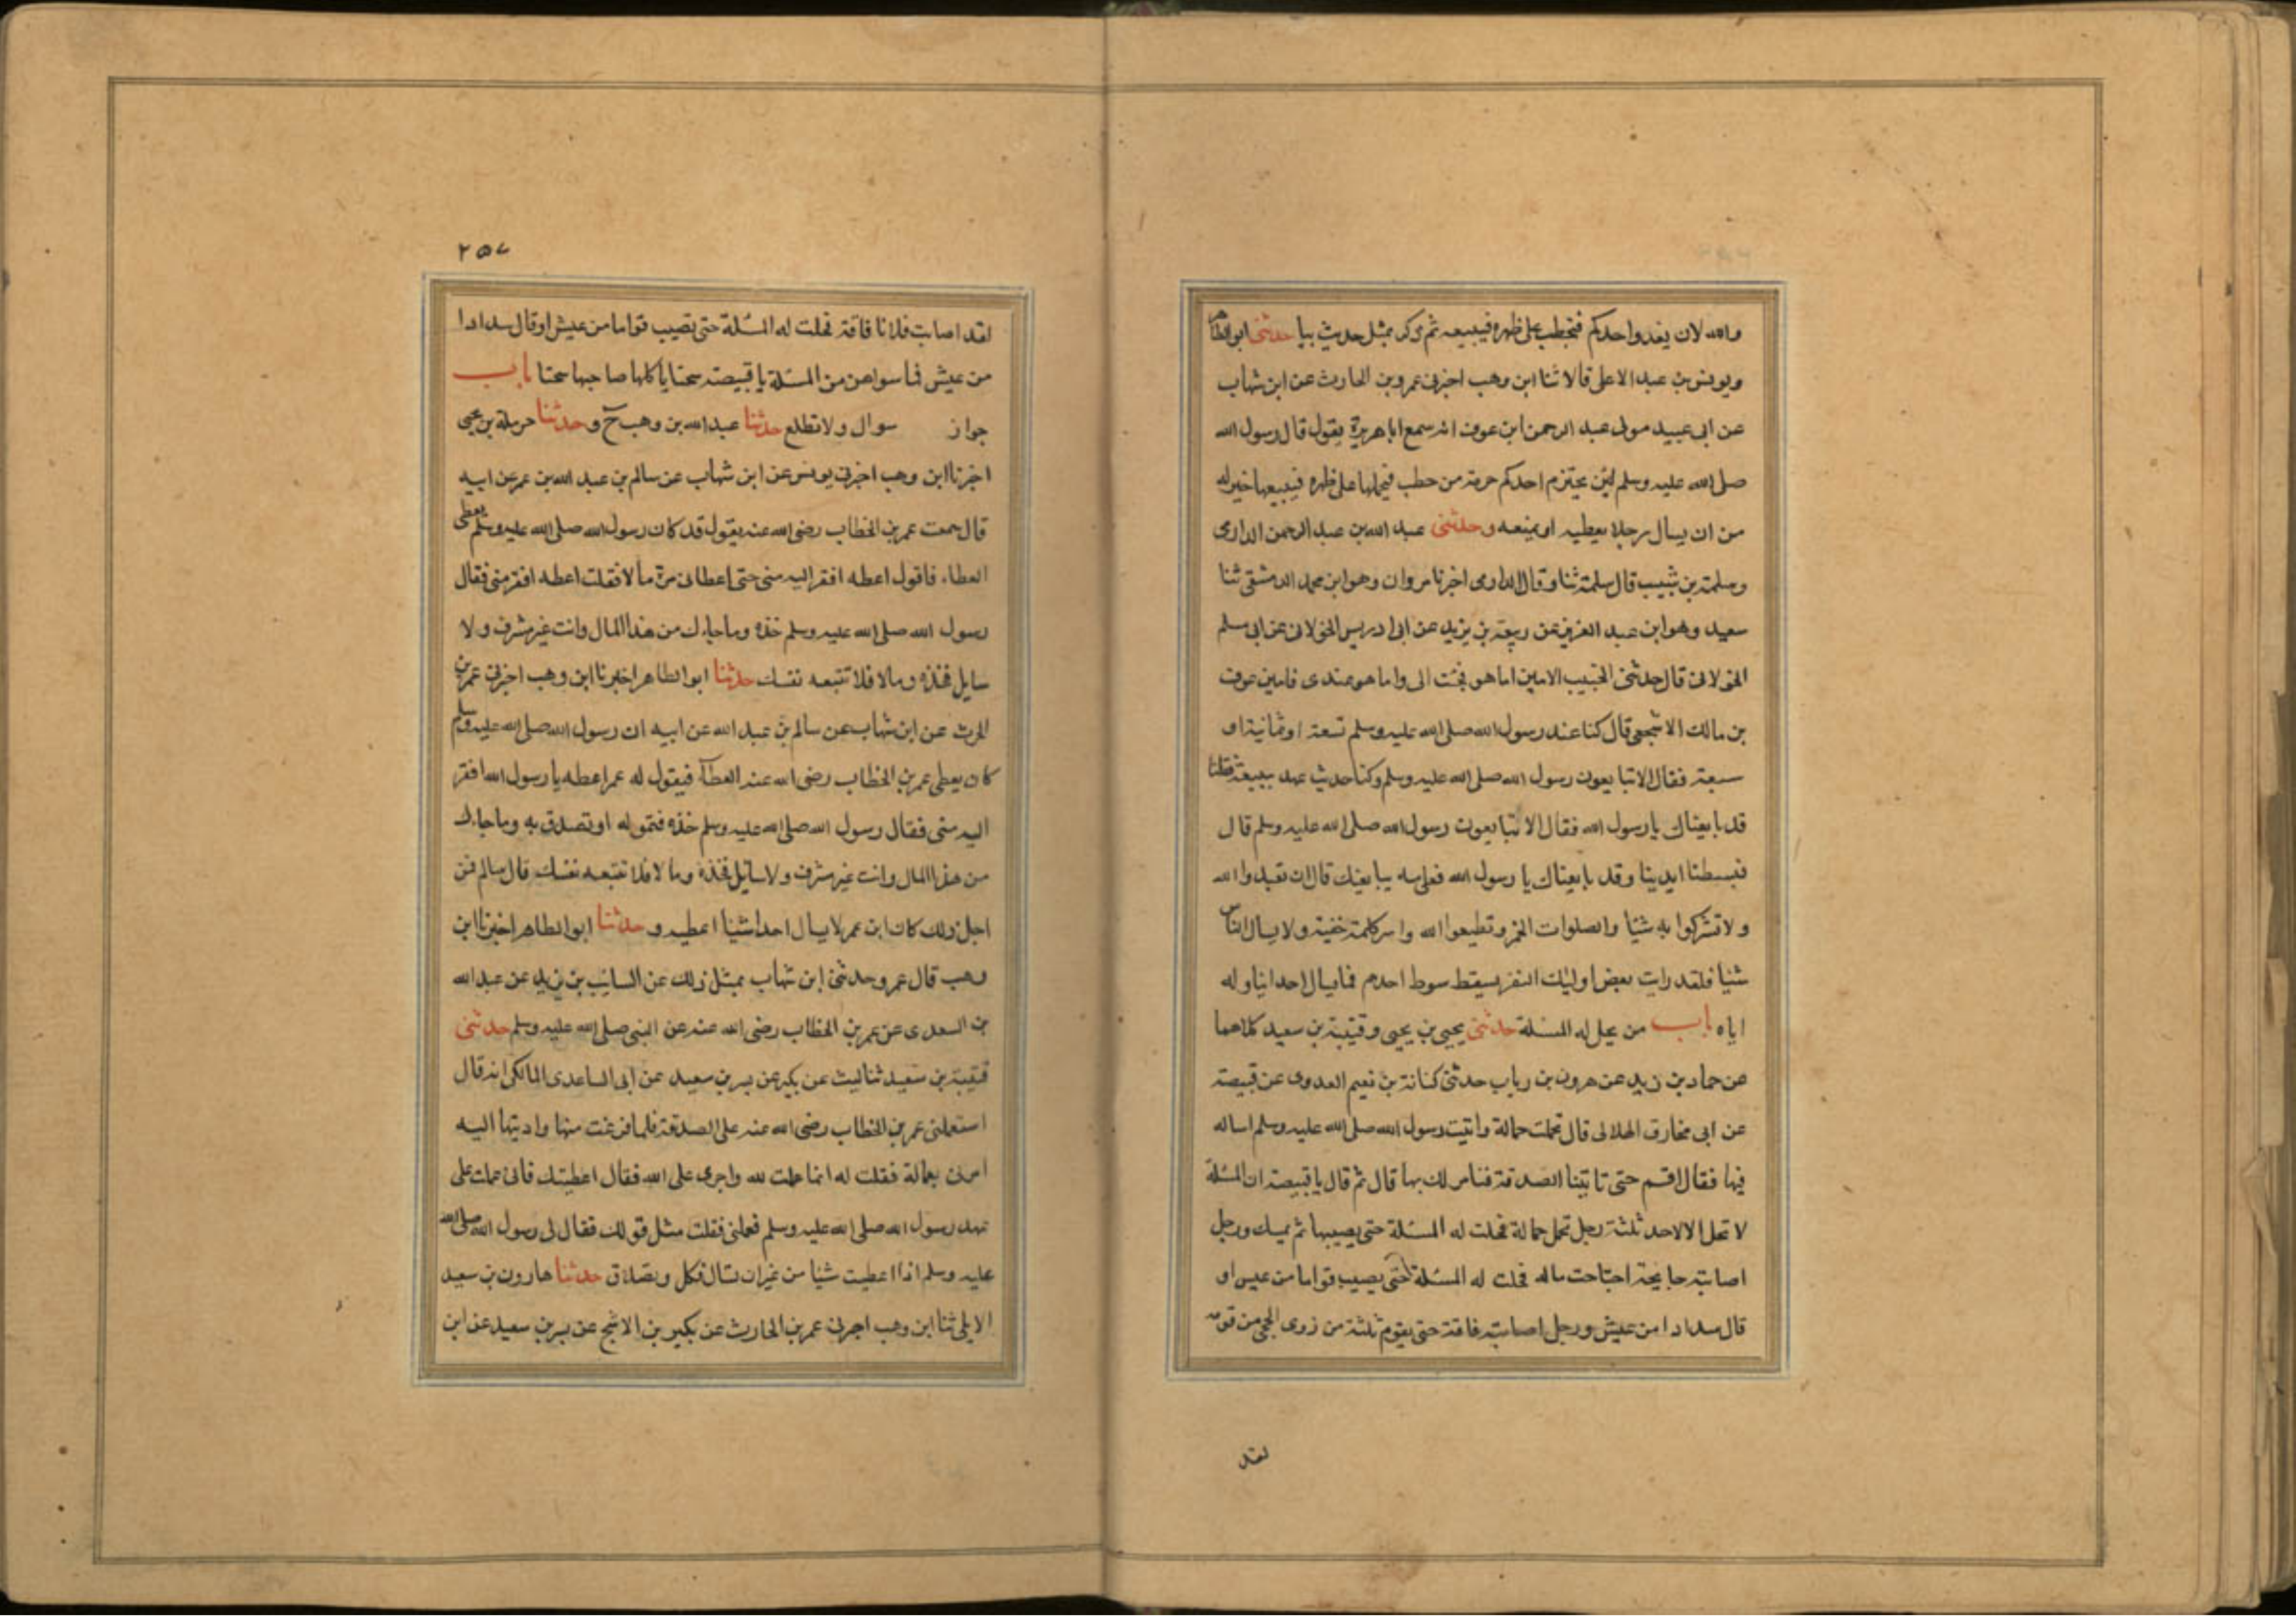 والله لان يغدوا احدكم فيحطب على ظهره فيبيعه ثم ذكر بمثل حديث بيا حدثنى ابو الطاهر
ويونس بن عبد الاعلى قالا ثنا ابن وهب اخبرنى عمرو بن الحارث عن ابن شهاب
عن ابى عبيد مولى عبد الرحمن ابن عوف انه سمع ابا هريرة يقول قال رسول الله
صلى الله عليه وسلم لئن يحتزم احدكم حزمة من حطب فيحملها على ظهره فيبيعها خير له
من ان يسال رجلا يعطيه او يمنعه وحدثنى عبد الله بن عبد الرحمن الدارمى
وسلمة بن شبيب قال سلمة ثنا وقال الدارمى اخبرنا مروان وهو ابن محمد الدمشقى ثنا
سعيد وهو ابن عبد العزيز عن ربيعة بن يزيد عن ابى ادريس الخولانى عن ابى مسلم
الخولانى قال حدثنى الحبيب الامين اما هو فحبيب الى واما هو عندى فامين عوف
بن مالك الاشجعى قال كنا عند رسول الله صلى الله عليه وسلم تسعة او ثمانية او
سبعة فقال الا تبايعون رسول الله صلى الله عليه وسلم وكنا حديث عهد ببيعة فقلنا
قد بايعناك يا رسول الله فقال الا تبايعون رسول الله صلى الله عليه وسلم قال
فبسطنا ايدينا وقد بايعناك يا رسول الله فعلى مه يبايعك قال ان تعبدوا الله
ولا تشركوا به شيا والصلوات الخمس وتطيعوا الله واسر كلمة خفية ولا يسال الناس
شيا فلقد رايت بعض اوليك النفر يسقط سوط احدهم فما يسال احدا يناوله
اياه باب من يحل له المسئلة حدثنى يحيى بن يحيى وقتيبة بن سعيد كلاهما
عن حماد بن زيد عن هرون بن رياب حدثنى كنانة بن نعيم العدوى عن قبيصة
عن ابى مخارق الهلالى قال تحملت حمالة واتيت رسول الله صلى الله عليه وسلم اساله
فيها فقال اقم حتى تاتينا الصدقة فنامر لك بها قال ثم قال يا قبيصة ان المسئلة
لا تحل الا لاحد ثلثة رجل تحمل حمالة فحلت له المسئلة حتى يصيبها ثم يمسك ورجل
اصابته جايحة اجتاحت ماله فحلت له المسئلة حتى يصيب قواما من عيش او
قال سدادا من عيش ورجل اصابته فاقة حتى يقوم ثلثة من ذوى الحجى من قومه
لقد
٢٥٧
لقد اصابت فلانا فاقة فحلت له المسئلة حتى يصيب قواما من عيش او قال سدادا
من عيش فما سواهن من المسئلة يا قبيصة سحتا ياكلها صاحبها سحتا باب
جواز سوال ولا تطلع حدثنا عبد الله بن وهب ح وحدثنا حرملة بن يحيى
اخبرنا ابن وهب اخبرنى يونس عن ابن شهاب عن سالم بن عبد الله بن عمر عن ابيه
قال سمعت عمر بن الخطاب رضى الله عنه يقول قد كان رسول الله صلى الله عليه وسلم يعطى
العطاء فاقول اعطه افقر اليه منى حتى اعطانى مرة مالا فقلت اعطه افقر منى فقال
رسول الله صلى الله عليه وسلم خذه وما جاءك من هذا المال وانت غير مشرف ولا
سايل فخذه ومالا فلا تتبعه نفسك حدثنا ابو الطاهر اخبرنا ابن وهب اخبرنى عمر بن
الحرث عن ابن شهاب عن سالم بن عبد الله عن ابيه ان رسول الله صلى الله عليه وسلم
كان يعطى عمر بن الخطاب رضى الله عنه العطآء فيقول له عمر اعطه يا رسول الله افقر
اليه منى فقال رسول الله صلى الله عليه وسلم خذه فتموله او تصدق به وما جاءك
من هذا المال وانت غير مشرف ولا سائل فخذه وما لا فلا تتبعه نفسك قال سالم فمن
اجل ذلك كان ابن عمر لا يسال احدا شيئا اعطيه وحدثنا ابو الطاهر اخبرنا ابن
وهب قال عمرو حدثنى ابن شهاب بمثل ذلك عن السايب بن يزيد عن عبد الله
بن السعدى عن عمر بن الخطاب رضى الله عنه عن النبى صلى الله عليه وسلم حدثنى
قتيبة بن سعيد ثنا ليث عن بكير عن بسر بن سعيد عن ابى الساعدى المالكى انه قال
استعملنى عمر بن الخطاب رضى الله عنه على الصدقة فلما فرغت منها واديتها اليه
امرنى بعمالة فقلت له انما عملت لله واجرى على الله فقال اعطيتك فانى عملت على
عهد رسول الله صلى الله عليه وسلم فعملنى فقلت مثل قولك فقال لى رسول الله صلى الله
عليه وسلم اذا اعطيت شيا من غير ان تسال فكل وتصدق حدثنا هارون بن سعيد
الايلى ثنا ابن وهب اخبرنى عمر بن الحارث عن بكير بن الاشج عن بسر بن سعيد عن ابن